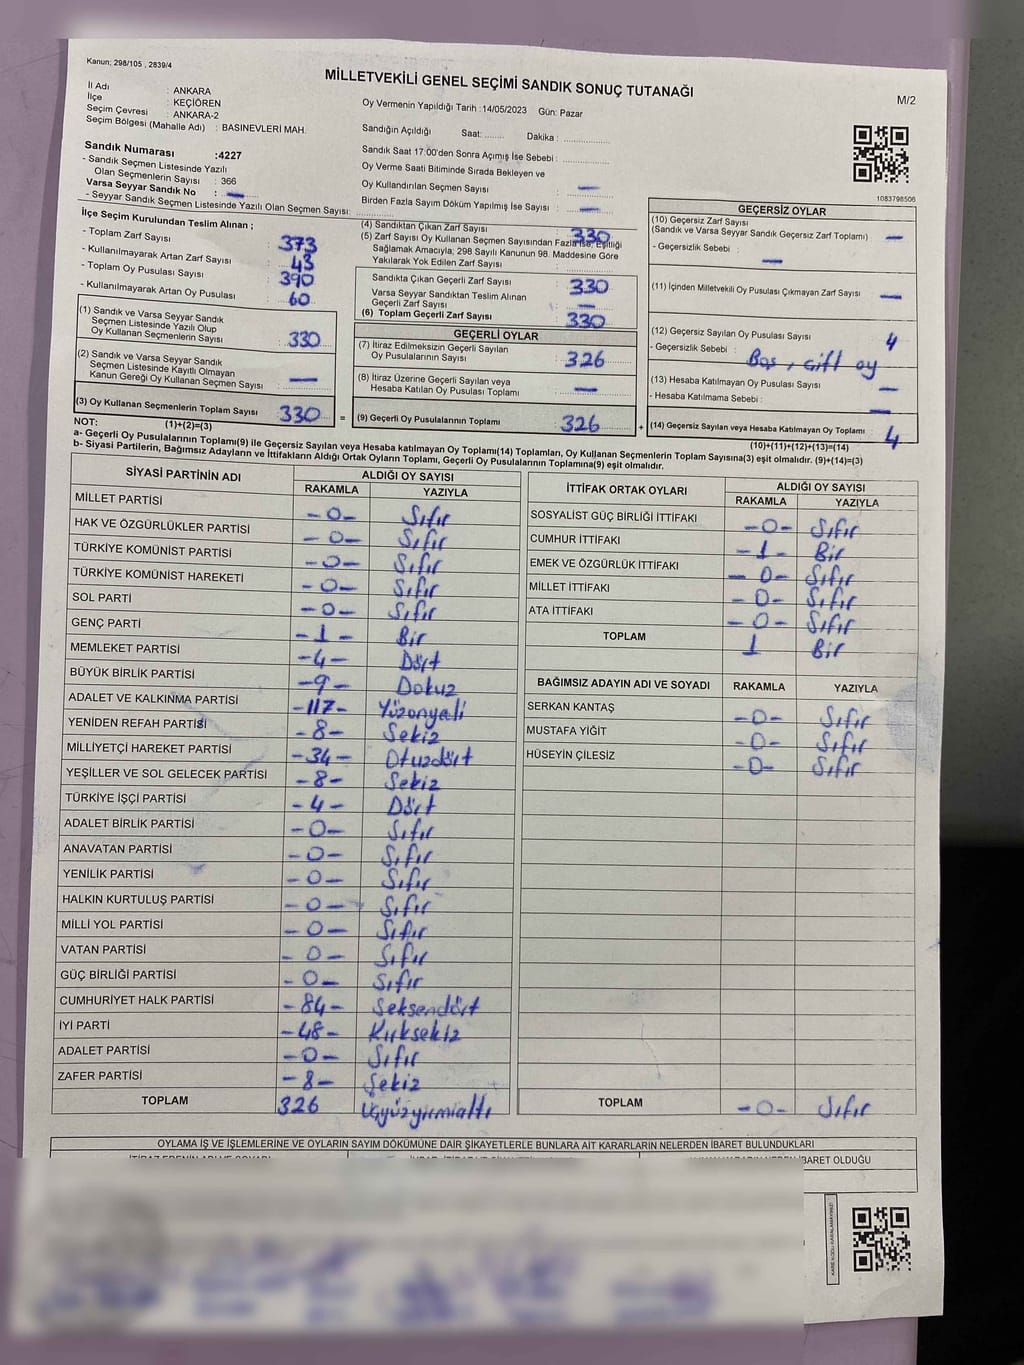 Kanun: 298/105 , 2839/4
MİLLETVEKİLİ GENEL SEÇİMİ SANDIK SONUÇ TUTANAĞI
M/2
İl Adı : ANKARA
İlçe : KEÇİÖREN
Seçim Çevresi : ANKARA-2
Seçim Bölgesi (Mahalle Adı) : BASINEVLERİ MAH.
Oy Vermenin Yapıldığı Tarih :14/05/2023 Gün: Pazar
Sandığın Açıldığı Saat:........ Dakika : ..................
Sandık Saat 17:00'den Sonra Açımış İse Sebebi : ..................
Oy Verme Saati Bitiminde Sırada Bekleyen ve
Oy Kullandırılan Seçmen Sayısı —
Birden Fazla Sayım Döküm Yapılmış İse Sayısı —
Sandık Numarası :4227
- Sandık Seçmen Listesinde Yazılı
Olan Seçmenlerin Sayısı : 366
Varsa Seyyar Sandık No : —
- Seyyar Sandık Seçmen Listesinde Yazılı Olan Seçmen Sayısı:
1083798506
İlçe Seçim Kurulundan Teslim Alınan ;
- Toplam Zarf Sayısı : 373
- Kullanılmayarak Artan Zarf Sayısı : 43
- Toplam Oy Pusulası Sayısı : 390
- Kullanılmayarak Artan Oy Pusulası : 60
(1) Sandık ve Varsa Seyyar Sandık
Seçmen Listesinde Yazılı Olup
Oy Kullanan Seçmenlerin Sayısı : 330
(2) Sandık ve Varsa Seyyar Sandık
Seçmen Listesinde Kayıtlı Olmayan
Kanun Gereği Oy Kullanan Seçmen Sayısı : —
(3) Oy Kullanan Seçmenlerin Toplam Sayısı 330 =
(1)+(2)=(3)
(4) Sandıktan Çıkan Zarf Sayısı : 330
(5) Zarf Sayısı Oy Kullanan Seçmen Sayısından Fazla İse, Eşitliği
Sağlamak Amacıyla, 298 Sayılı Kanunun 98. Maddesine Göre
Yakılarak Yok Edilen Zarf Sayısı
Sandıkta Çıkan Geçerli Zarf Sayısı : 330
Varsa Seyyar Sandıktan Teslim Alınan
Geçerli Zarf Sayısı : —
(6) Toplam Geçerli Zarf Sayısı : 330
GEÇERLİ OYLAR
(7) İtiraz Edilmeksizin Geçerli Sayılan
Oy Pusulalarının Sayısı : 326
(8) İtiraz Üzerine Geçerli Sayılan veya
Hesaba Katılan Oy Pusulası Toplamı : —
(9) Geçerli Oy Pusulalarının Toplamı : 326 +
GEÇERSİZ OYLAR
(10) Geçersiz Zarf Sayısı
(Sandık ve Varsa Seyyar Sandık Geçersiz Zarf Toplamı) : —
- Geçersizlik Sebebi : —
(11) İçinden Milletvekili Oy Pusulası Çıkmayan Zarf Sayısı : —
(12) Geçersiz Sayılan Oy Pusulası Sayısı : 4
- Geçersizlik Sebebi : Boş, çift oy
(13) Hesaba Katılmayan Oy Pusulası Sayısı : —
- Hesaba Katılmama Sebebi : —
(14) Geçersiz Sayılan veya Hesaba Katılmayan Oy Toplamı : 4
(10)+(11)+(12)+(13)=(14)
NOT:
a- Geçerli Oy Pusulalarının Toplamı(9) ile Geçersiz Sayılan veya Hesaba katılmayan Oy Toplamı(14) Toplamları, Oy Kullanan Seçmenlerin Toplam Sayısına(3) eşit olmalıdır. (9)+(14)=(3)
b- Siyasi Partilerin, Bağımsız Adayların ve İttifakların Aldığı Ortak Oyların Toplamı, Geçerli Oy Pusulalarının Toplamına(9) eşit olmalıdır.
SİYASİ PARTİNİN ADI ALDIĞI OY SAYISI
RAKAMLA YAZIYLA
MİLLET PARTİSİ -0- Sıfır
HAK VE ÖZGÜRLÜKLER PARTİSİ -0- Sıfır
TÜRKİYE KOMÜNİST PARTİSİ -0- Sıfır
TÜRKİYE KOMÜNİST HAREKETİ -0- Sıfır
SOL PARTİ -0- Sıfır
GENÇ PARTİ -1- Bir
MEMLEKET PARTİSİ -4- Dört
BÜYÜK BİRLİK PARTİSİ -9- Dokuz
ADALET VE KALKINMA PARTİSİ -117- Yüzonyedi
YENİDEN REFAH PARTİSİ -8- Sekiz
MİLLİYETÇİ HAREKET PARTİSİ -34- Otuzdört
YEŞİLLER VE SOL GELECEK PARTİSİ -8- Sekiz
TÜRKİYE İŞÇİ PARTİSİ -4- Dört
ADALET BİRLİK PARTİSİ -0- Sıfır
ANAVATAN PARTİSİ -0- Sıfır
YENİLİK PARTİSİ -0- Sıfır
HALKIN KURTULUŞ PARTİSİ -0- Sıfır
MİLLİ YOL PARTİSİ -0- Sıfır
VATAN PARTİSİ -0- Sıfır
GÜÇ BİRLİĞİ PARTİSİ -0- Sıfır
CUMHURİYET HALK PARTİSİ -84- Seksendört
İYİ PARTİ -48- Kırksekiz
ADALET PARTİSİ -0- Sıfır
ZAFER PARTİSİ -8- Sekiz
TOPLAM 326 Üçyüzyirmialtı
İTTİFAK ORTAK OYLARI ALDIĞI OY SAYISI
RAKAMLA YAZIYLA
SOSYALİST GÜÇ BİRLİĞİ İTTİFAKI -0- Sıfır
CUMHUR İTTİFAKI -1- Bir
EMEK VE ÖZGÜRLÜK İTTİFAKI -0- Sıfır
MİLLET İTTİFAKI -0- Sıfır
ATA İTTİFAKI -0- Sıfır
TOPLAM 1 Bir
BAĞIMSIZ ADAYIN ADI VE SOYADI RAKAMLA YAZIYLA
SERKAN KANTAŞ -0- Sıfır
MUSTAFA YİĞİT -0- Sıfır
HÜSEYİN ÇİLESİZ -0- Sıfır
TOPLAM -0- Sıfır
OYLAMA İŞ VE İŞLEMLERİNE VE OYLARIN SAYIM DÖKÜMÜNE DAİR ŞİKAYETLERLE BUNLARA AİT KARARLARIN NELERDEN İBARET BULUNDUKLARI
İBARET OLDUĞU
KARE KODU KARALAMAYINIZ!